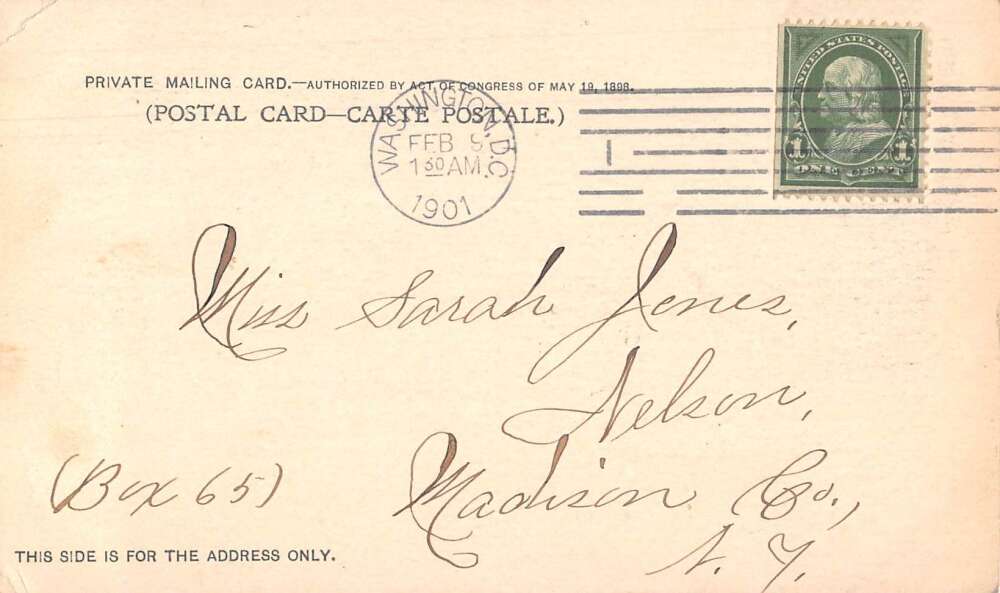 PRIVATE MAILING CARD.—AUTHORIZED BY ACT OF CONGRESS OF MAY 19, 1898.
(POSTAL CARD—CARTE POSTALE.)
WASHINGTON, D.C.
FEB 9
1 30 AM
1901
UNITED STATES POSTAGE
1 1
ONE CENT
Miss Sarah Jones,
Nelson,
(Box 65)
Madison Co.,
N. Y.
THIS SIDE IS FOR THE ADDRESS ONLY.